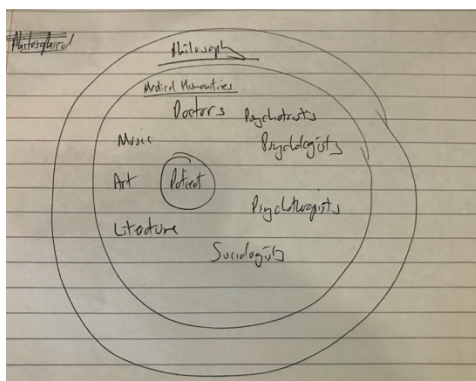 Philosophical
Philosophy
Medical Humanities
Doctors
Psychiatrists
Music
Psychologists
Art
Patient
Psychotherapists
Literature
Sociologists